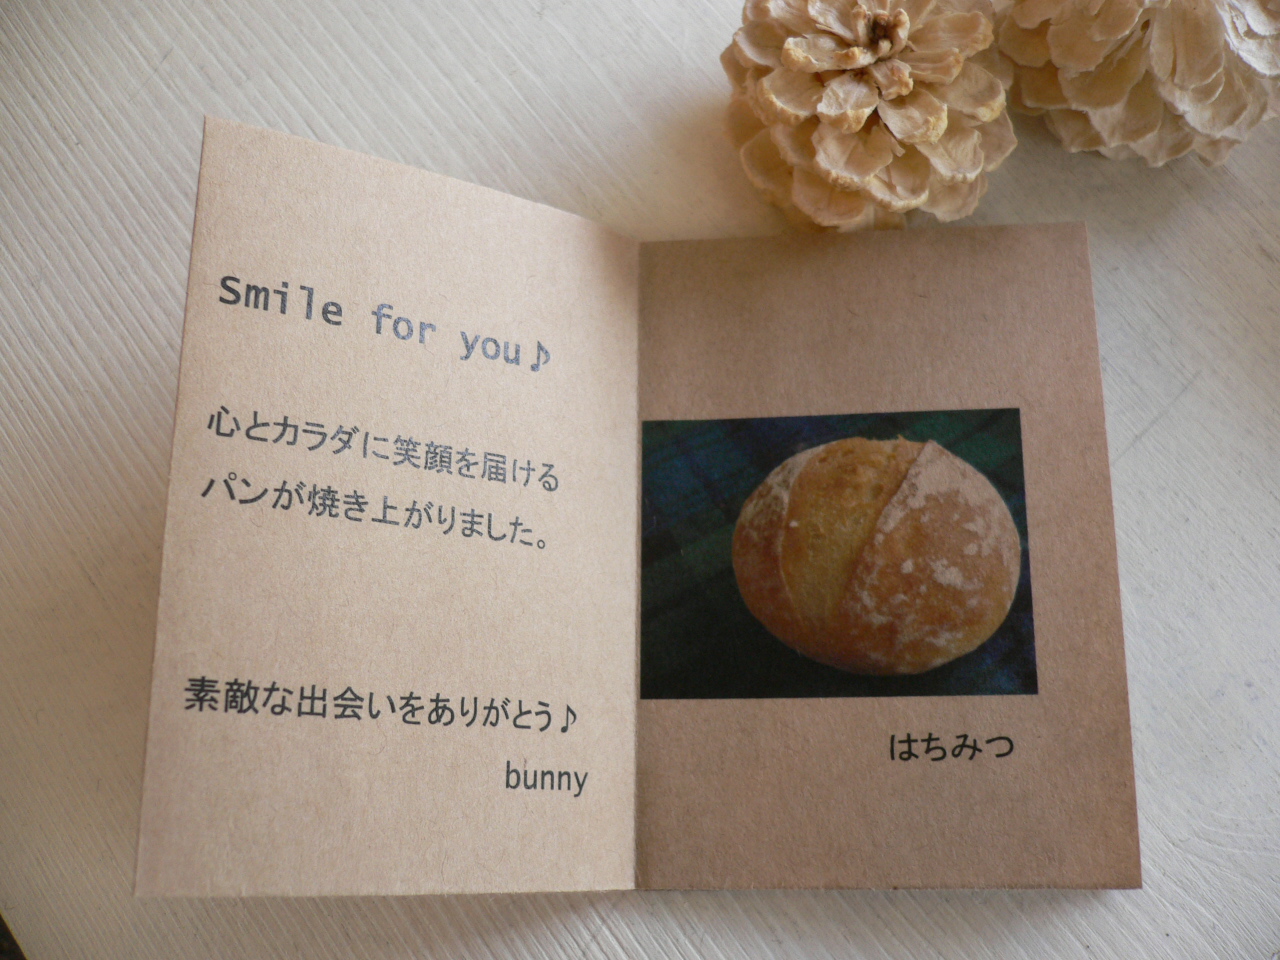 Smile for you♪
心とカラダに笑顔を届ける
パンが焼き上がりました。
素敵な出会いをありがとう♪
bunny
はちみつ